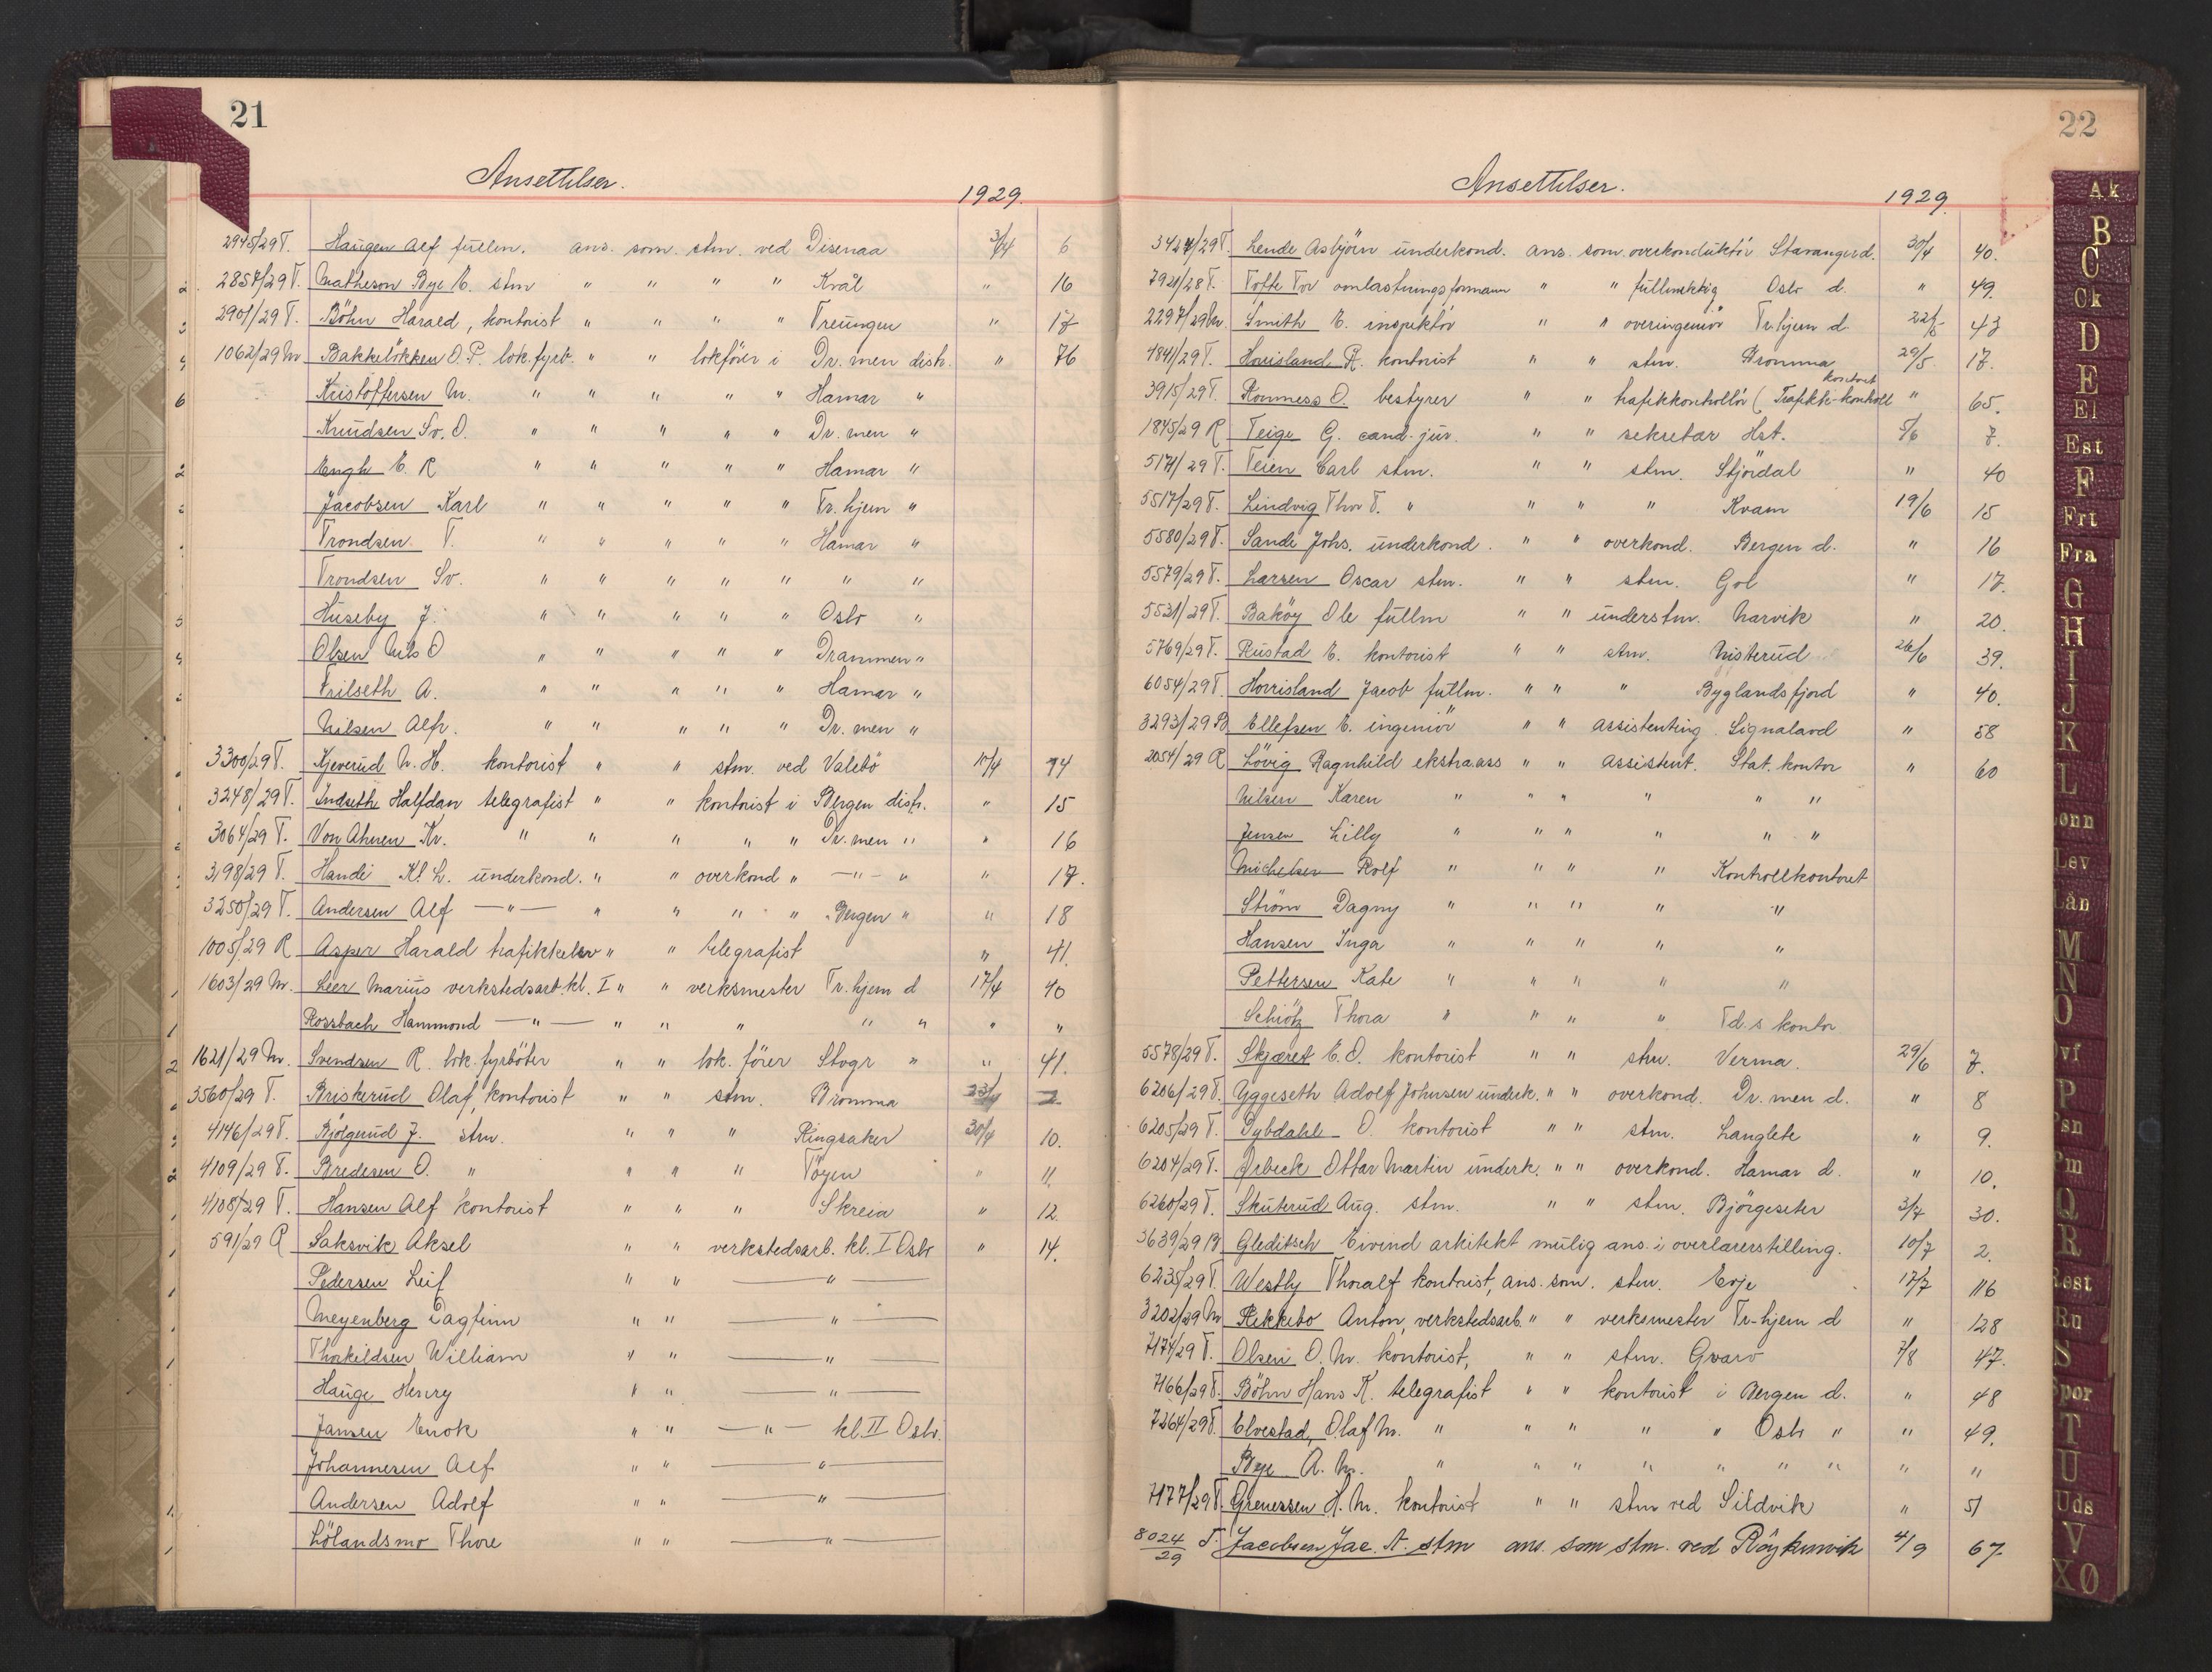 21
Ansettelser.
1929.
2945/29 T. Haugen Alf fullm. ans. som stm. ved Disenaa 3/4 6
2857/29 T. Matheson Bye E. stm " " " " Kvål " 16
2901/29 T. Böhn Harald, kontorist " " " " Treungen " 17
1062/29 M Bakkeløkken O. P. lok.fyrb. " " lokfører i Dr.men distr. " 76
Kristoffersen M. " " " " " Hamar "
Knudsen Sv. O. " " " " " Dr.men "
Engh E. R " " " " " Hamar "
Jacobsen Karl " " " " " Tr.hjem "
Trondsen T. " " " " " Hamar "
Trondsen Sv. " " " " " " "
Huseby J. " " " " " Oslo "
Olsen Nils O " " " " " Drammen "
Frilseth A. " " " " " Hamar "
Nilsen Alfr. " " " " " Dr.men "
3300/29 T. Kjeverud N. H. kontorist " " stm. ved Valebö 10/4 14
3248/29 T. Indseth Halfdan telegrafist " " kontorist i Bergen distr. " 15
3064/29 T. Von Ahnen Kr. " " " " " Dr.men " " 16
3198/29 T. Hande Kl. L. underkond. " " overkond " —"— " " 17.
3250/29 T. Andersen Alf —"— " " " " Bergen " " 18
1005/29 R Asper Harald trafikkelev " " telegrafist " 41.
1603/29 M. Leer Marius verkstedsarb. kl. I " " verksmester Tr.hjem d 17/4 40
Rossbach Hammond —"— " " " " " " "
1621/29 M. Svendsen R. lok.fyrböter " " lok.förer Stvgr " " 41.
3560/29 T. Briskerud Olaf, kontorist " " stm. Bromma 23/4 2
4146/29 T. Bjölgerud J. stm. " " " Ringsaker 30/4 10.
4109/29 T. Bredesen O. " " " " Töyen " 11.
4108/29 T. Hansen Alf kontorist " " " Skreia " 12.
591/29 R Saksvik Aksel " " verkstedsarb. kl. I Oslo " 14.
Pedersen Leif " " —"—
Meyenberg Dagfinn " " —"—
Thorkildsen William " " —"—
Hauge Henry " " —"—
Jansen Enok " " —"— kl. II Oslo.
Johannesen Alf " " —"—
Andersen Adolf " " —"—
Lölandsmo Thore " " —"—
22
Ansettelser.
1929.
3424/29 T. Lende Asbjörn underkond. ans. som overkonduktör Stavangerd. 30/4 40.
7921/28 T. Tofte Tor omlastningsformann " " fullmektig Oslo d. " 49.
2297/29 M. Smith E. inspektör " " overingeniör Tr.hjem d. 22/5 43
4841/29 T. Horrisland R. kontorist " " stm. Bromma 29/5 17.
3915/29 T. Ronness O. bestyrer " " trafikkontrollör (Trafikk-kontroll kontoret " 65.
1845/29 R Teige G. cand. jur. " " sekretær Hst. 5/6 7.
5171/29 T. Teien Carl stm. " " stm. Stjördal " 40
5517/29 T. Lindvig Thor T. " " " " Kvam 19/6 15
5580/29 T. Sande Johs. underkond. " " overkond. Bergen d. " 16
5579/29 T. Larsen Oscar stm. " " stm. Gol " 17.
5531/29 T. Baköy Ole fullm " " understm. Narvik " 20.
5769/29 T. Rustad E. kontorist " " stm. Nisterud 26/6 39.
6054/29 T. Horrisland Jacob fullm. " " " Byglandsfjord " 40.
3293/29 B Ellefsen E. ingeniör " " assistenting. Signalavd " 58
2054/29 R Lövig Ragnhild ekstraass " " assistent. Stat. kontor " 60
Nilsen Karen " " " " " "
Jensen Lilly " " " " " "
Michelsen Rolf " " " " Kontrollkontoret
Ström Dagny " " " " "
Hansen Inga " " " " "
Pettersen Kate " " " " "
Schiötz Thora " " " " Td.s kontor
5578/29 T. Skjæret E. O. kontorist " " stm. Verma. 29/6 7.
6206/29 T. Yggeseth Adolf Johnsen underk. " " overkond. Dr.men d. " 8
6205/29 T. Dybdahl O. kontorist " " stm. Langlete " 9.
6204/29 T. Ørbeck Ottar Martin underk. " " overkond. Hamar d. " 10.
6260/29 T. Skuterud Aug. stm. " " stm. Björgeseter 3/7 30.
3639/29 B Gleditsch Eivind arkitekt mulig ans. i overlærerstilling. 10/7 2.
6235/29 T. Westby Thoralf kontorist, ans. som. stm. Evje 17/7 116
3202/29 M Rekkebo Anton, verkstedsarb. " " verksmester Tr-hjem d " 128
7174/29 T. Olsen O. M. kontorist, " " stm. Gvarv 7/8 47.
7166/29 T. Böhn Hans K. telegrafist " " kontorist i Bergen d. " 48
7264/29 T. Elvestad, Olaf M. " " " " " Oslo " " 49.
Bye A. M. " " " " " " " " "
7177/29 T. Grenersen H. M. kontorist " " stm ved Sildvik " 51
8024/29 T. Jacobsen Jac. A. stm ans. som stm. ved Röykenvik 4/9 67
A.k
B
C
Ck
D
E
El
Est
F
Frt
Fra
G
H
I
J
K
L
Lønn
Lev
Lån
M
N
O
Ovf
P
Psn
Pm
Q
R
Rest
Ru
S
Spor
T
U
Uds
V
XØ